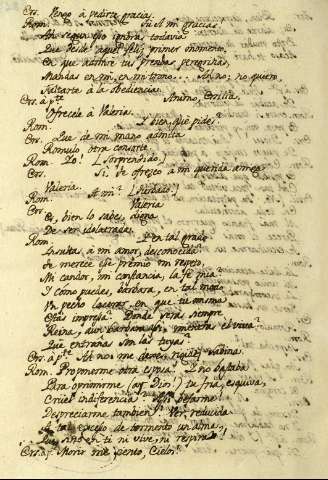 Ers. Vengo à pedirte gracias.
Rom. Tu à mi gracias
Ah segun eso ignoras todavia
Que desde aquel feliz primer momento,
En que admiré tus prendas peregrinas,
Mandas en mi, en mi trono... Ah, no; no quiero
Faltarte à la obediencia.
Ers. ap.te Animo, Ersilia.
Ofrecele à Valeria.
Rom. Y bien, que pides?
Ers. Que de mi mano admita
Romulo otra consorte.
Rom. Yo! (Sorprendido)
Ers. Si. Te ofrezco à mi querida amiga
Valeria.
Rom. A mi? (Turbado)
Ers. Valeria
Es, bien lo sabes, digna
De ser idolatrada.
Rom. Y en tal grado
Insultas, à mi amor, desconocida?
Se merece ese premio mi respeto,
Mi candor, mi constancia, la fe mia?
Y como puedes, barbara, en tal modo
Un pecho lacerar, en que tu misma
Estas impresa? Donde seras siempre
Reina, aun barbara asi, mientras el viva?
Que entrañas son las tuyas?
Ers. à p.te Ah no me dejes, rigida
Rom. Proponerme otra esposa! Y no bastaba
Para oprimirme (ay Dios!) tu fria, esquiva,
Cruel indiferencia? Aun befarme!
Despreciarme tambien! Ver reducida
A tal exceso de tormento un alma,
Que sino en ti ni vive, ni respira!
Ers. ap. Morir me siento, Cielos!